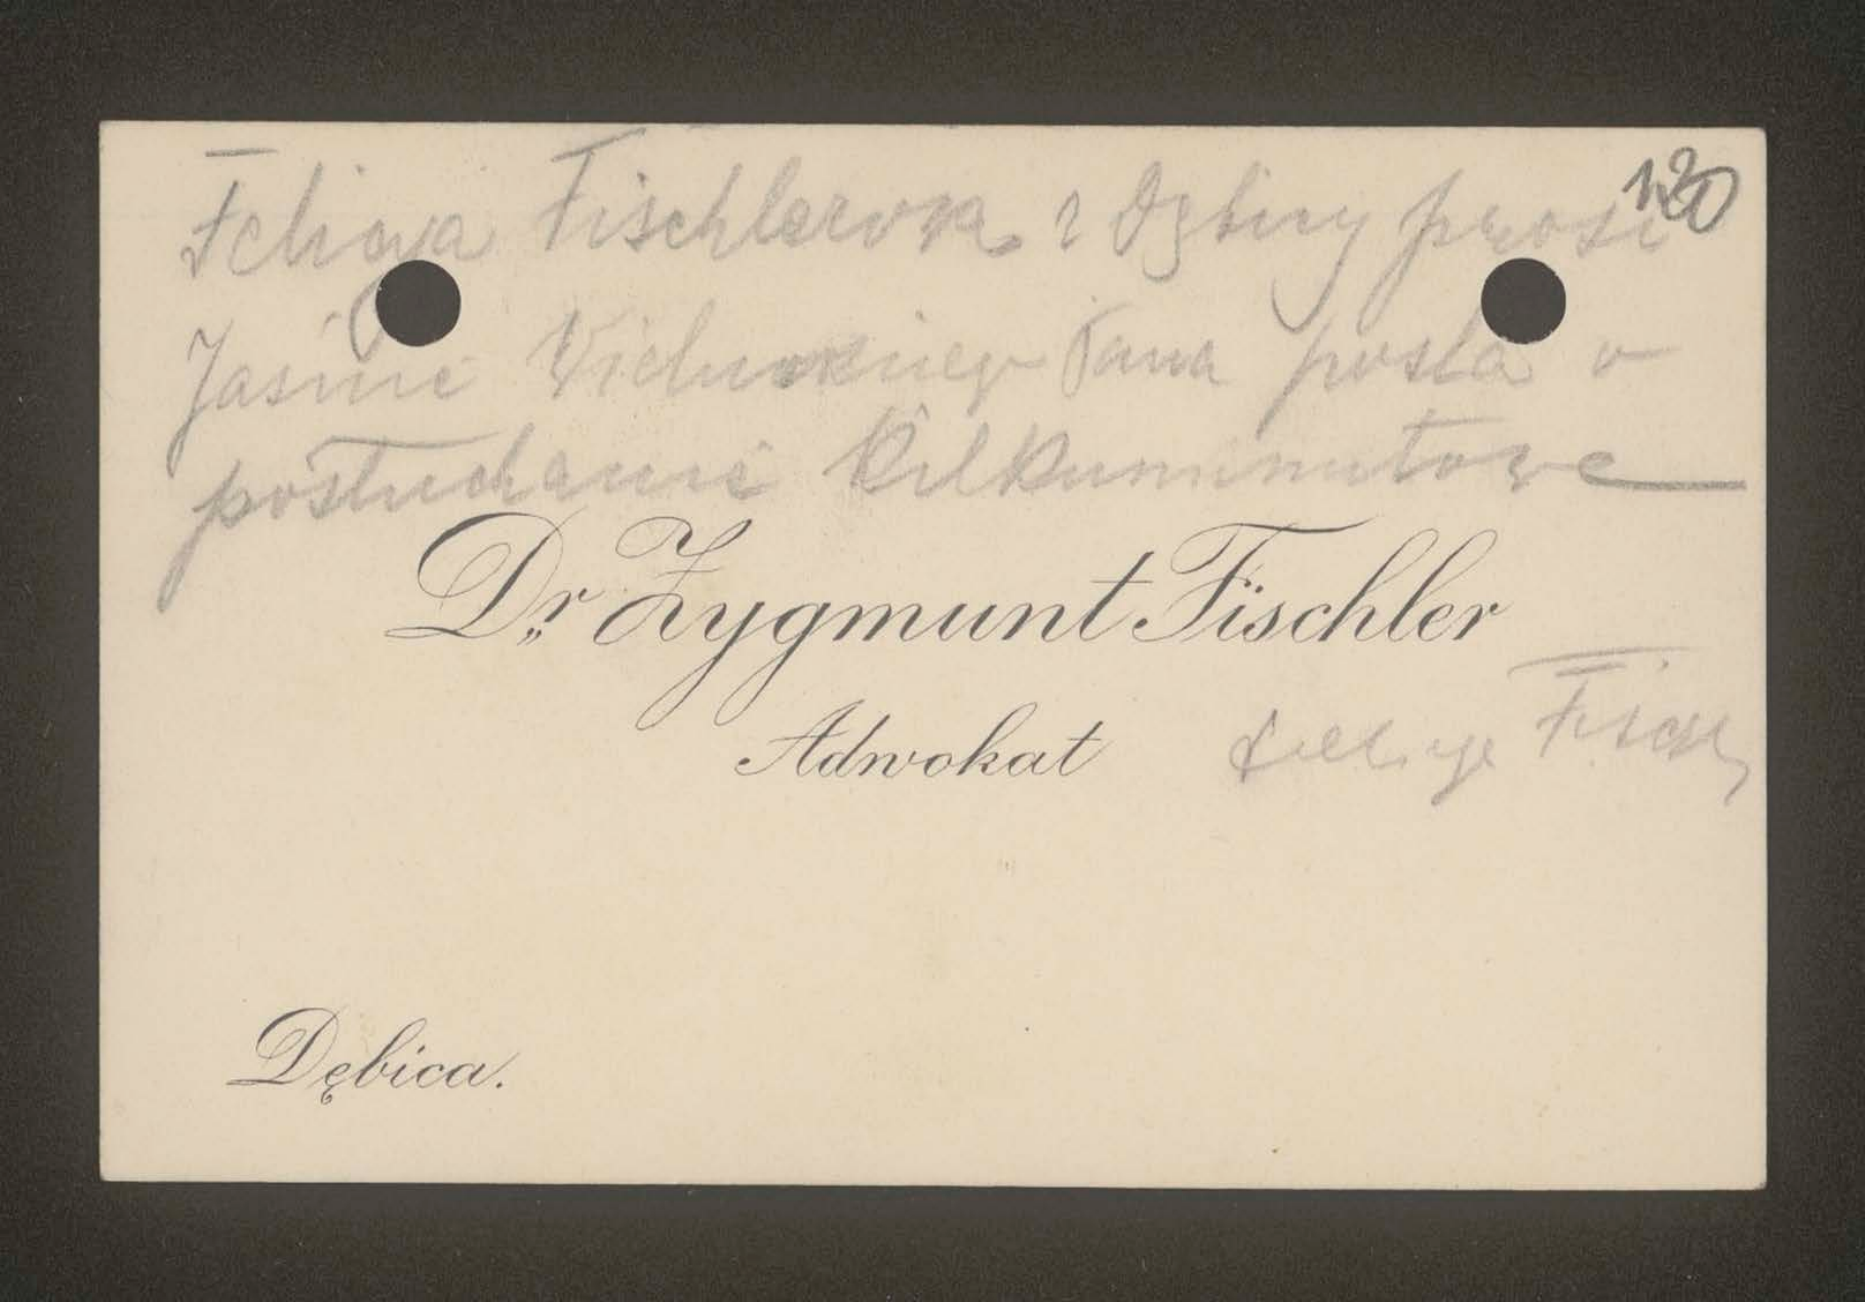 130
Felicya Fischlerowa z Dębicy prosi
Jaśnie Wielmożnego Pana posła o
posłuchanie kilkuminutowe
Dr. Zygmunt Fischler
Adwokat
Fischl
Dębica.